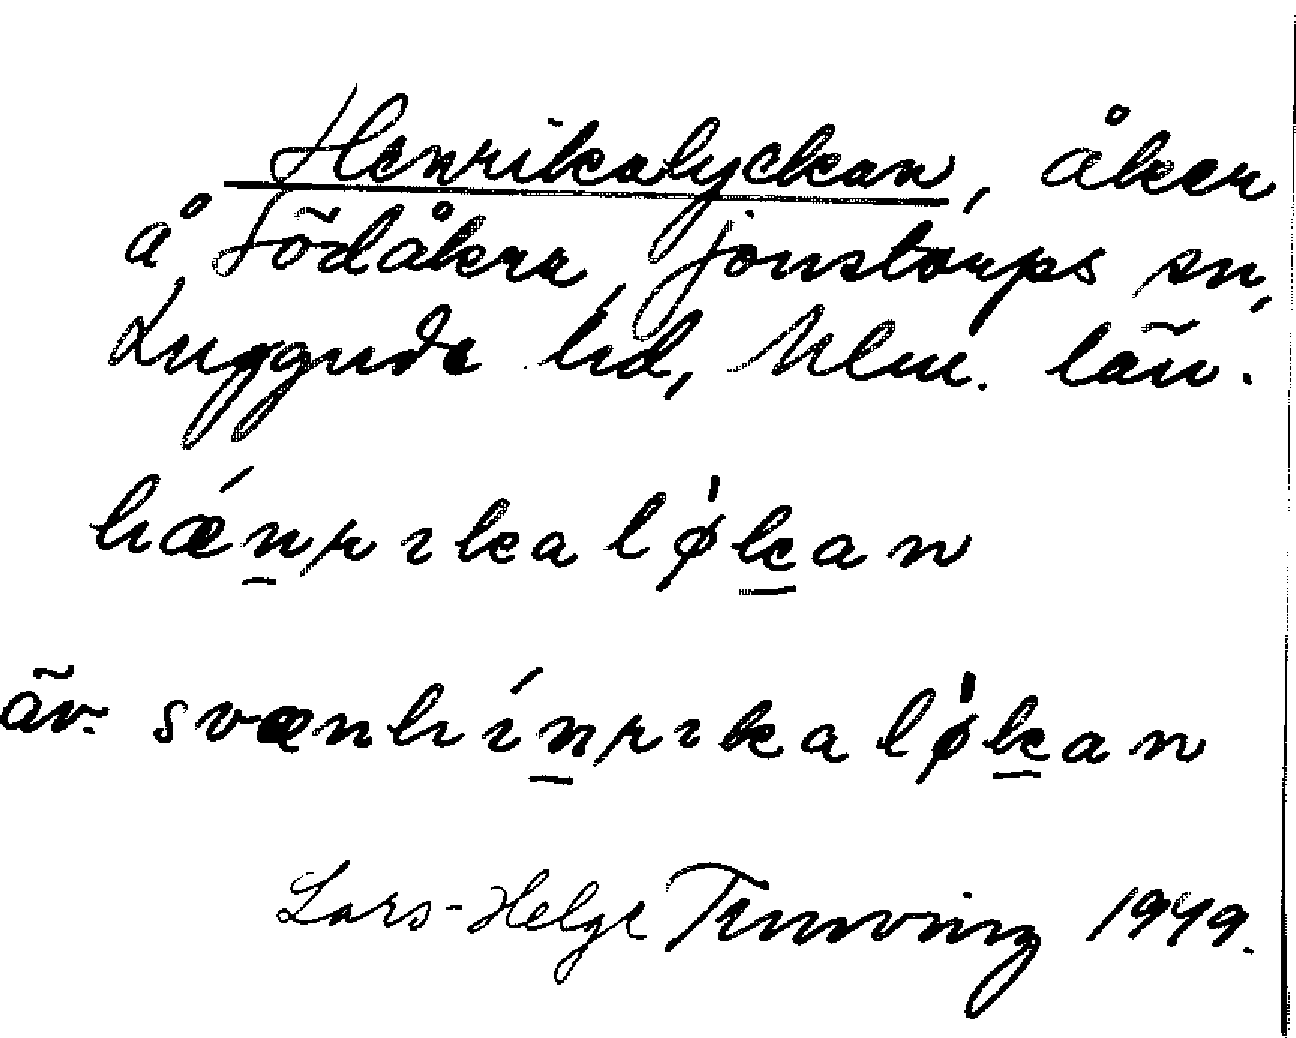 Henrikalyckan, åker
å Södåkra, Jonstorps sn,
Luggude hd, Mlm. län.
hǽn̲rıkaløk̲an
äv. svænhín̲rıkaløk̲an
Lars-Helge 1949.